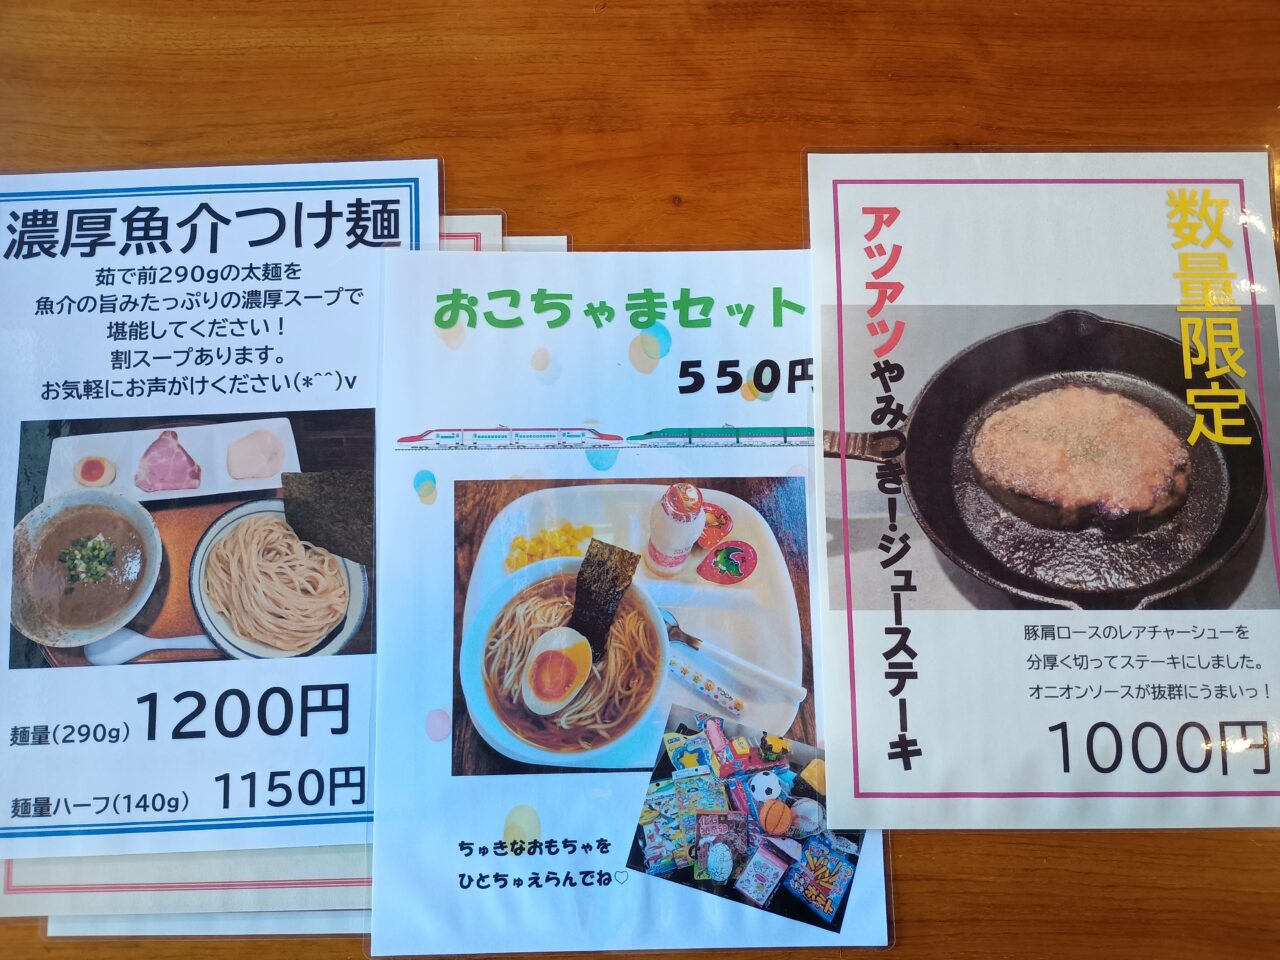 濃厚魚介つけ麺
茹で前290gの太麺を
魚介の旨みたっぷりの濃厚スープで
堪能してください！
割スープあります。
お気軽にお声がけください(*^^)v
麺量(290g) 1200円
麺量ハーフ(140g) 1150円
おこちゃまセット
550円
ちゅきなおもちゃを
ひとちゅえらんでね♡
数量限定
アツアツやみつき！ジューステーキ
豚肩ロースのレアチャーシューを
分厚く切ってステーキにしました。
オニオンソースが抜群にうまいっ！
1000円